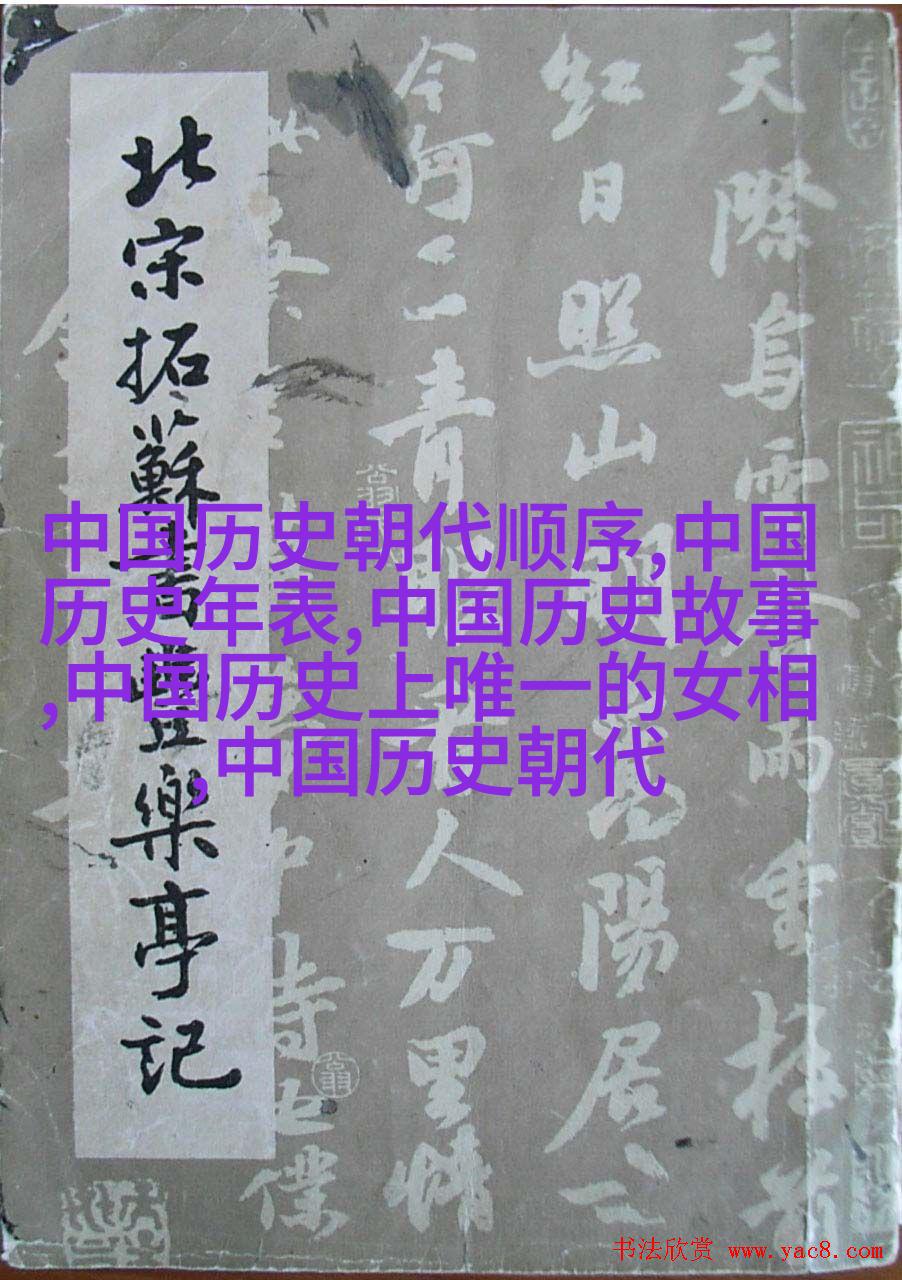 天際烏雲含雨重樓前
紅日照山明嵩陽居士
今何在青眼看人万里情
夢中詩也僕
北宋拓蘇書豐樂亭記
中国历史朝代顺序,中国
历史年表,中国历史故事
,中国历史上唯一的女相
,中国历史朝代
书法欣赏 www.yac8.com